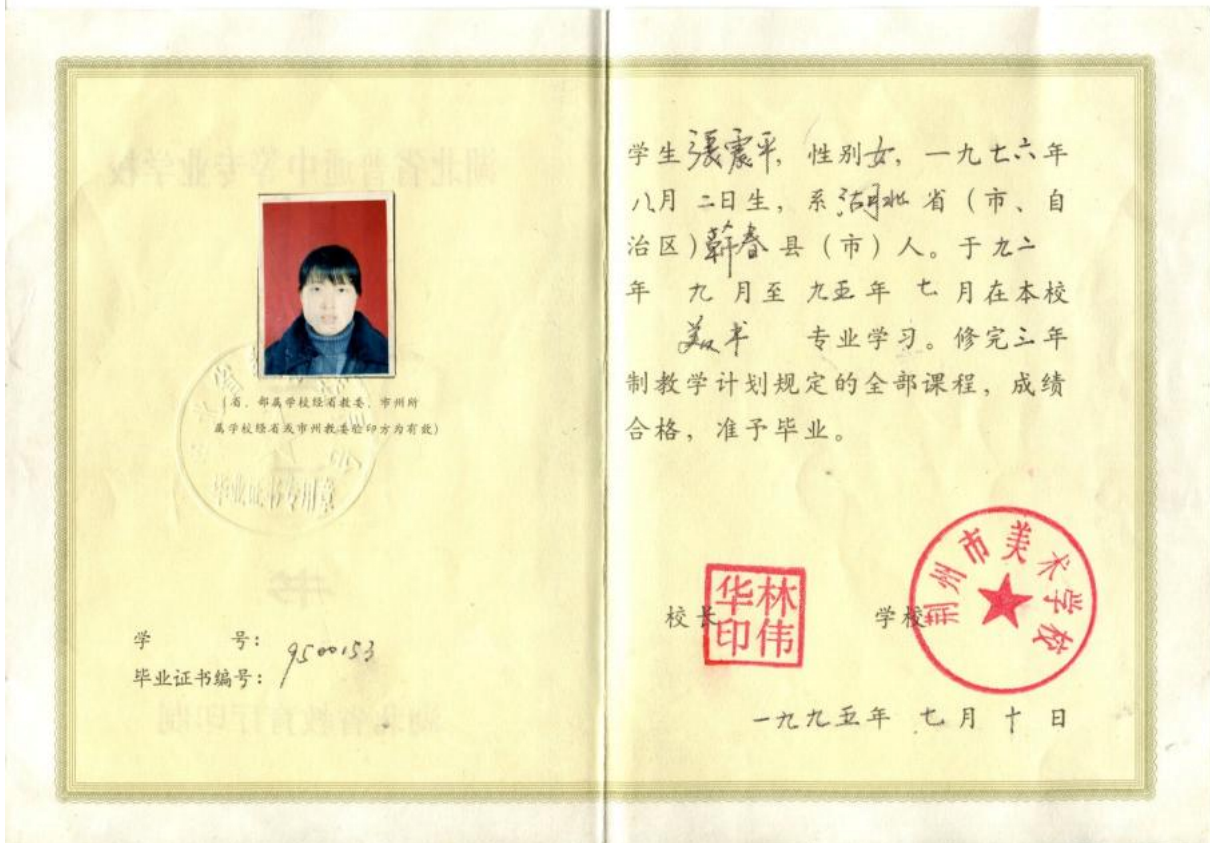 (省、部属学校经省教委、市州所
属学校经省或市州教委验印方为有效)
毕业证书专用章
学 号:
9500153
毕业证书编号:
学生張震平, 性别女, 一九七六年
八月 二日生, 系湖北 省 (市、自
治区)蕲春 县 (市) 人。于 九二
年 九 月至 九五 年 七 月在本校
美术 专业学习。修完三年
制教学计划规定的全部课程, 成绩
合格, 准予毕业。
校长
林伟华印
学校
荆州市美术学校
一九九五年 七 月 十 日